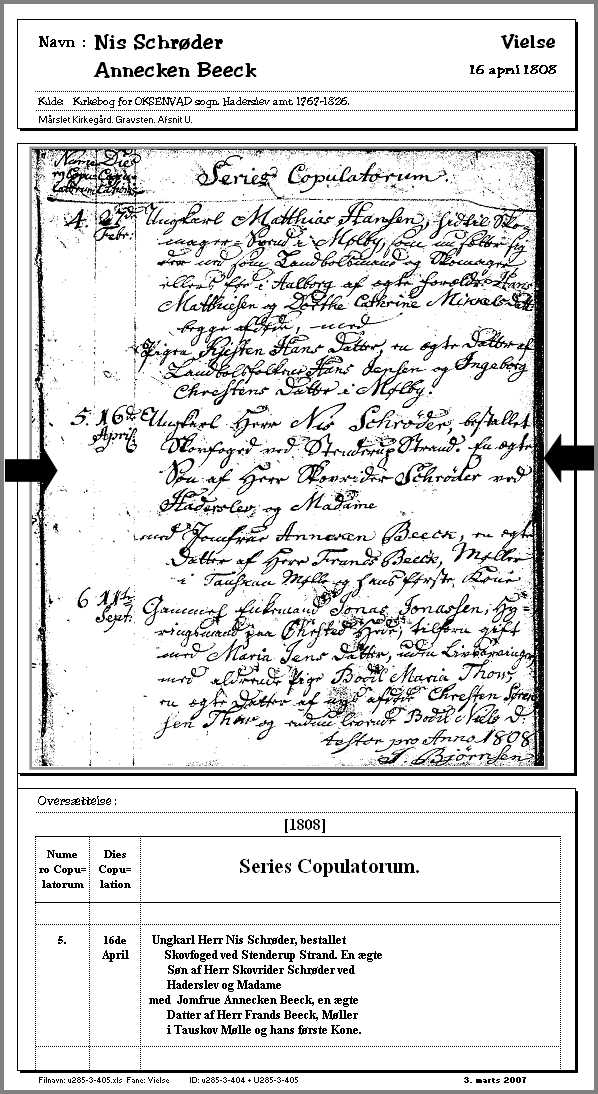 Navn : Nis Schrøder Vielse
Annecken Beeck 16 april 1808
Kilde: Kirkebog for OKSENVAD sogn. Haderslev amt. 1767-1826.
Mårslet Kirkegård. Gravsten. Afsnit U.
Series Copulatorum.
4. 27de Ungkarl Matthias Hansen, hidtil Sko
Febr. mager Svend i Mølby, som nu sætter sig
der ned som Landbolsmand og Skomager
i Aalborg af ægte forældre Hans
Matthiesen og Dorthe Cathrine Mikkels Datt
begge afdøde, med
Pigen Kjesten Hans Datter, en ægte Datter af
Landbolsfolkene Hans Jensen og Ingeborg
Chrestens Datter i Mølby.
5. 16de Ungkarl Herr Nis Schrøder, bestallet
April. Skovfoged ved Stenderup Strand. En ægte
Søn af Herr Skovrider Schrøder ved
Haderslev og Madame
med Jomfrue Annecken Beeck, en ægte
Datter af Herr Frands Beeck, Møller
i Tauskov Mølle og hans første Kone
6 11te Gammel Enkemand Jonas Jonassen, Hy=
Sept. ringsmand paa Øhrsted Hede, tilforn gift
med Maria Jens Datter, uden Livsarvinger,
med aldrende Pige Bodil Maria Thow,
en ægte Datter af nys afdøde Chresten Søren
sen Thow og endnu levende Bodil Niels D.
testor pro Anno 1808
J. Bjørnsen
Oversættelse:
[1808]
Nume Dies
ro Copu= Copu= Series Copulatorum.
latorum lation
5. 16de Ungkarl Herr Nis Schrøder, bestallet
April Skovfoged ved Stenderup Strand. En ægte
Søn af Herr Skovrider Schrøder ved
Haderslev og Madame
med Jomfrue Annecken Beeck, en ægte
Datter af Herr Frands Beeck, Møller
i Tauskov Mølle og hans første Kone.
Filnavn: u285-3-405.xls Fane: Vielse ID: u285-3-404 + U285-3-405 3. marts 2007